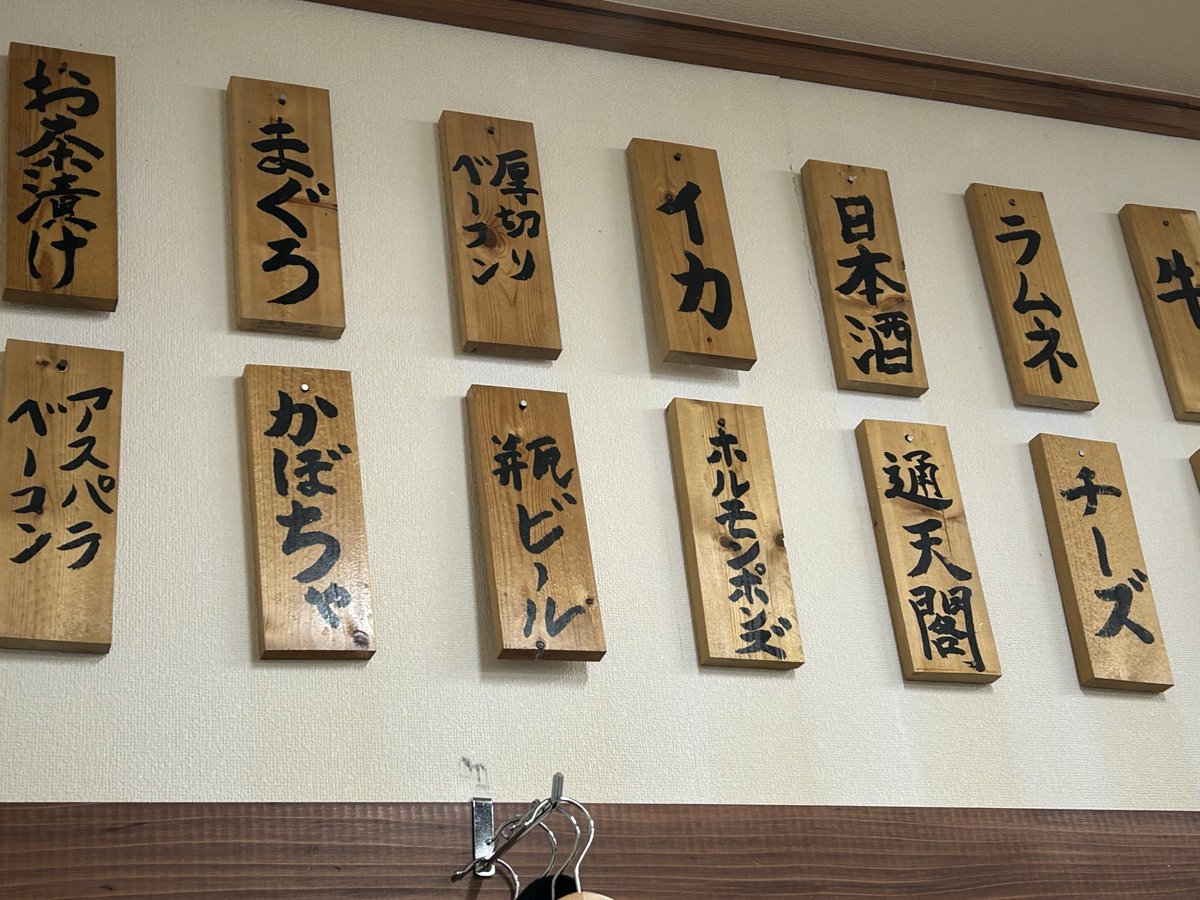 お茶漬け
まぐろ
厚切り
ベーコン
イカ
日本酒
ラムネ
牛
アスパラ
ベーコン
かぼちゃ
瓶ビール
ホルモンポンズ
通天閣
チーズ